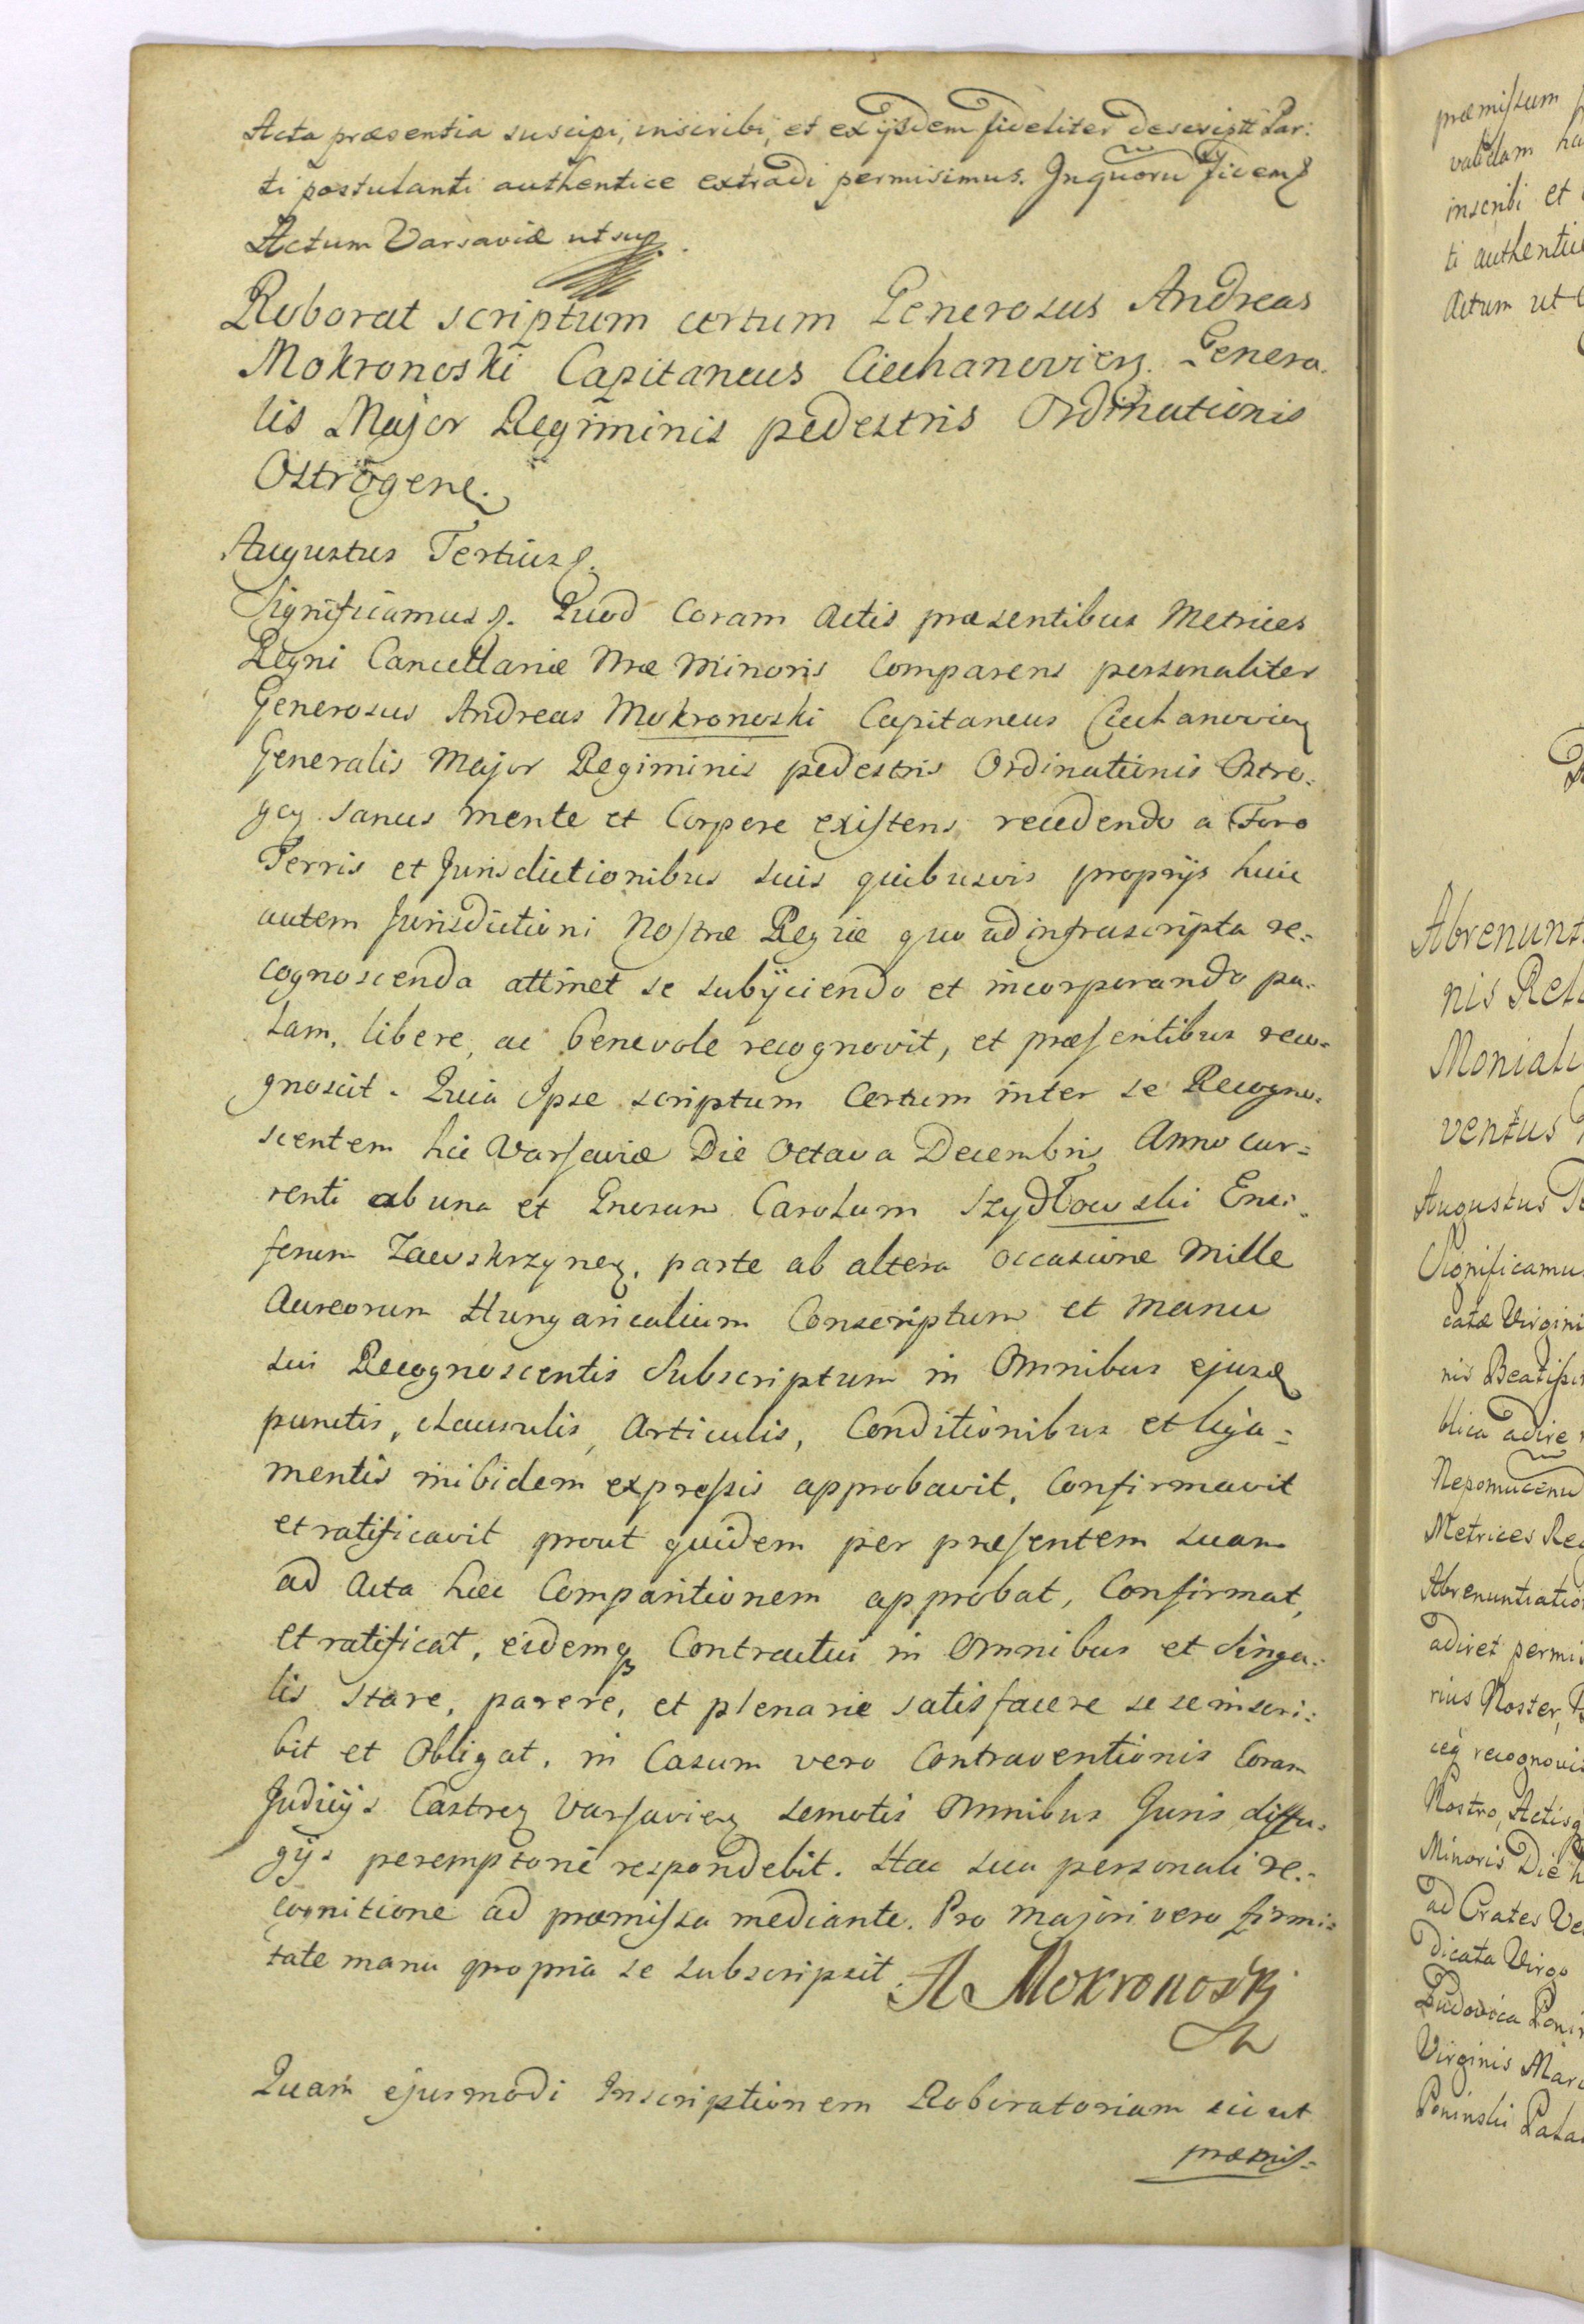 Acta præsentia suscipi, inscribi, et ex ijsdem fideliter descriptt Par:
ti postulanti authentice extradi permisimus. In quoru fidem
Actum Varsaviæ ut sup.
Roborat scriptum certum Generosus Andreas
Mokronoski Capitaneus Ciechanovien. Genera-
lis Major Regiminis pedestris Ordinationis
Ostrogenc.
Augustus Tertius
Significamus Quod Coram Actis præsentibus Metrices
Regni Cancellariæ Nræ Minoris Comparens personaliter
Generosus Andreas Mokronoski Capitaneus Ciechanovien
Generalis Major Regiminis pedestris Ordinationis Ostro-
gen. sanus mente et Corpore existens, recedendo a Foro
Terris et Jurisdictionibus suis quibusvis proprijs huic
autem Jurisdictioni Nostræ Regiæ quo ad infrascripta re-
cognoscenda attinet se subijciendo et incorporando pa-
lam, libere, ac benevole recognovit, et præsentibus reco-
gnoscit. Quia Ipse scriptum Certum inter se Recogno-
scentem hic Varsaviæ Die Octava Decembris Anno cur-
renti ab una et Gnerosum Carolum Szydłowski Ensi-
ferum Zawskrzynen. parte ab altera occasione Mille
Aureorum Hungaricalium Conscriptum et Manu
sui Recognoscentis Subscriptum in Omnibus ejus
punctis, clausulis, Articulis, Conditionibus et liga-
mentis inibidem expressis approbavit, Confirmavit
et ratificavit prout quidem per præsentem suam
ad Acta hæc Comparitionem approbat, Confirmat,
et ratificat, eidemq Contractui in Omnibus et Singu-
lis stare, parere, et plenarie satisfacere se se inscri-
bit et Obligat, in Casum vero Contraventionis Coram
Judicijs Castren Varsavien semotis Omnibus Juris diffu-
gijs peremptorie respondebit. Hac sua personali re-
cognitione ad præmissa mediante. Pro majori vero firmi-
tate manu propria se subscripsit A Mokronoski
Quam ejusmodi Inscriptionem Roboratoriam sic ut
præmis-
præmissum
validam
inscribi et
ti authentice
Actum ut
Abrenunt
nis
ventus
Augustus
Significamu
catæ Virgini
nis Beatissi
blica adire
Nepomucenu
Metrices Reg
Abrenuntiatio
adiret permi
rius Noster,
recognovi
Nostro, Actisq
Minoris Die
ad Crates Ve
dicata Virgo
Ludovica Poni
Virginis Mari
Poninski Pala